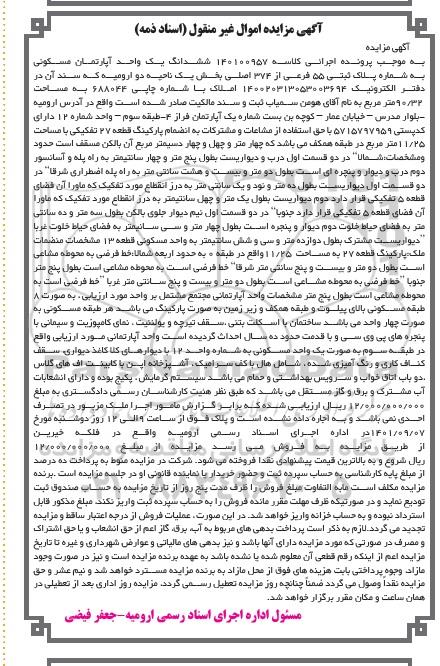 آگهی مزایده اموال غیر منقول (اسناد ذمه)
آگهی مزایده
به موجب پرونده اجرائی کلاسه ۱۴۰۱۰۰۹۵۷ ششدانگ یک واحد آپارتمان مسکونی
به شماره پلاک ثبتی ۵۵ فرعی از ۳۷۴ اصلی بخش یک ناحیه دو ارومیه که سند آن در
دفتر الکترونیک ۱۴۰۰۲۰۳۱۳۰۵۳۰۰۳۶۹۴ املاک با شماره چاپی ۶۸۸۰۴۴ به مساحت
۹۰/۳۲متر مربع به نام آقای هومن سمیاب ثبت و سند مالکیت صادر شده است واقع در آدرس ارومیه
-بلوار مدرس – خیابان عمار – کوچه بن بست شماره یک آپارتمان فراز ۴-طبقه سوم – واحد شماره ۱۲ دارای
کدپستی ۵۷۱۵۷۹۷۹۵۹ با حق استفاده از مشاعات و مشترکات به انضمام پارکینگ قطعه ۲۷ تفکیکی با مساحت
۱۱/۲۵متر مربع در طبقه همکف می باشد که چهار متر و چهل و چهار دسیمتر مربع آن بالکن مسقف است حدود
ومشخصات:شمالا" در دو قسمت اول درب و دیواریست بطول پنج متر و چهار سانتیمتر به راه پله و آسانسور
دوم درب و دیوار و پنجره ای است بطول دو متر و بیست و هشت سانتی متر به راه پله اضطراری شرقا" در
دو قسمت اول دیواریست بطول ده متر و نود و یک سانتی متر به درز انقطاع مورد تفکیک که ماورا آن فضای
قطعه ۵ تفکیکی قرار دارد دوم دیواریست بطول یک متر و چهل سانتیمتر به درز انقطاع مورد تفکیک که ماورا
آن فضای قطعه ۵ تفکیکی قرار دارد جنوبا" در دو قسمت اول نیم دیوار جلوی بالکن بطول سه متر و ده سانتی
متر به فضای حیاط خلوت دوم دیوار و پنجره است بطول چهار متر و سی سانیمتر به فضای حیاط خلوت غربا
"دیواریست مشترک بطول دوازده متر و سی و شش سانتیمتر به واحد مسکونی قطعه ۱۳ مشخصات منضمات
ملک:پارکینگ قطعه ۲۷ به مساحت ۱۱/۲۵ واقع در طبقه ۰ به حدود اربعه شمالا:خط فرضی به محوطه مشاعی
است بطول دو متر و بیست و پنج سانتی متر شرقا" خط فرضی است به محوطه مشاعی است بطول پنج متر
جنوبا "خط فرضی به محوطه مشاعی است بطول دو متر و بیست و پنج سانتی متر غربا "خط فرضی است به
محوطه مشاعی است بطول پنج متر مشخصات واحد آپارتمانی مجتمع مشتمل بر واحد مورد ارزیابی ، به صورت ۸
طبقه مسکونی بالای پیلوت و طبقه همکف و زیر زمین به صورت پارکینگ می باشد هر طبقه مسکونی به
صورت چهار واحد می باشد ساختمان با اسکلت بتنی ،سقف تیرچه و یولنیت ، نمای کامپوزیت و سیمانی با
پنجره های پی وی سی و با قدمت حدود ده سال احداث گردیده است واحد آپارتمانی مورد ارزیابی واقع
در طبقه سوم به صورت یک واحد مسکونی به شماره واحد ۱۲ با دیوارهای کلا کاغذ دیواری سقف
کناف کاری و رنگ آمیزی شده ، شامل هال با کف سرامیک ، آشپزخانه اپن با کابینت ام اف های گلاس
،دو باب اتاق خواب و سرویس بهداشتی و حمام می باشد سیستم گرمایش ، پکیج بوده و دارای انشعابات
آب مشترک و برق و گاز مستقل می باشد که طبق نظر هیئت کارشناسان رسمی دادگستری به مبلغ
۱۲/۰۰۰/۰۰۰/۰۰۰ ریال ارزیابی شده که برابر گزارش مامور اجرا ملک مزبور در تصرف
احدی نمی باشد و به اجاره داده نشده است و پلاک فوق از ساعت ۹ الی ۱۲ روز دوشنبه مورخ
۱۴۰۱/۰۹/۰۷در اداره اجرای اسناد رسمی ارومیه واقع در فلکه خیرین
از طریق مزایده به فروش می رسد مزایده از مبلغ ۱۲/۰۰۰/۰۰۰/۰۰۰
ریال شروع و به بالاترین قیمت پیشنهادی نقدا فروخته می شود. شرکت در مزایده منوط به پرداخت ده درصد
از مبلغ پایه کارشناسی به حساب سپرده ثبت و حضور خریدار یا نماینده قانونی او در جلسه مزایده است .برنده
مزایده مکلف است مابه التفاوت مبلغ فروش را ظرف مدت پنج روز از تاریخ مزایده به حساب صندوق ثبت
تودیع نماید و در صورتیکه ظرف مهلت مقرر مانده فروش را به حساب سپرده ثبت واریز نکند، مبلغ مذکور قابل
استرداد نبوده و به حساب خزانه واریز خواهد شد. در این صورت، عملیات فروش از درجه اعتبار ساقط و مزایده
تجدید می گردد.لازم به ذکر است پرداخت بدهی های مربوط به آب، برق، گاز اعم از حق انشعاب و یا حق اشتراک
و مصرف در صورتی که مورد مزایده دارای آنها باشد و نیز بدهی های مالیاتی و عوارض شهرداری و غیره تا تاریخ
مزایده اعم از اینکه رقم قطعی آن معلوم شده یا نشده باشد به عهده برنده مزایده است و نیز در صورت وجود
مازاد، وجوه پرداختی بابت هزینه های فوق از محل مازاد به برنده مزایده مسترد خواهد شد و نیم عشر و حق
مزایده نقدا وصول می گردد ضمنا چنانچه روز مزایده تعطیل رسمی گردد، مزایده روز اداری بعد از تعطیلی در
همان ساعت و مکان مقرر برگزار خواهد شد.
مسئول اداره اجرای اسناد رسمی ارومیه-جعفر فیضی